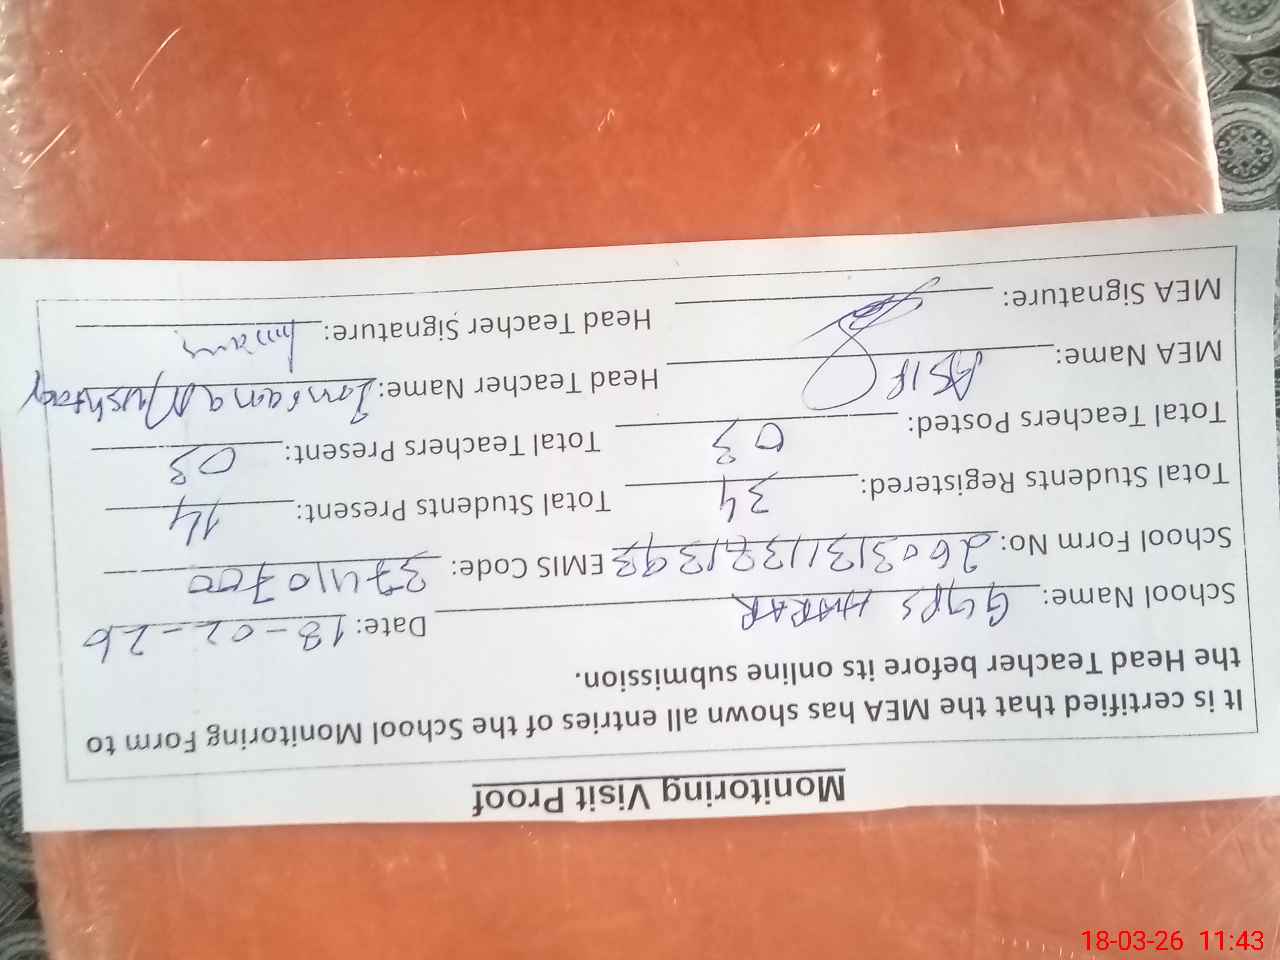 Monitoring Visit Proof
It is certified that the MEA has shown all entries of the School Monitoring Form to
the Head Teacher before its online submission.
School Name: GGPS HARAR Date: 18-02-26
School Form No: EMIS Code: 37410700
Total Students Registered: 34 Total Students Present: 14
Total Teachers Posted: 03 Total Teachers Present: 03
MEA Name: ASIF Head Teacher Name: Mushtaq
MEA Signature: Head Teacher Signature:
18-03-26 11:43